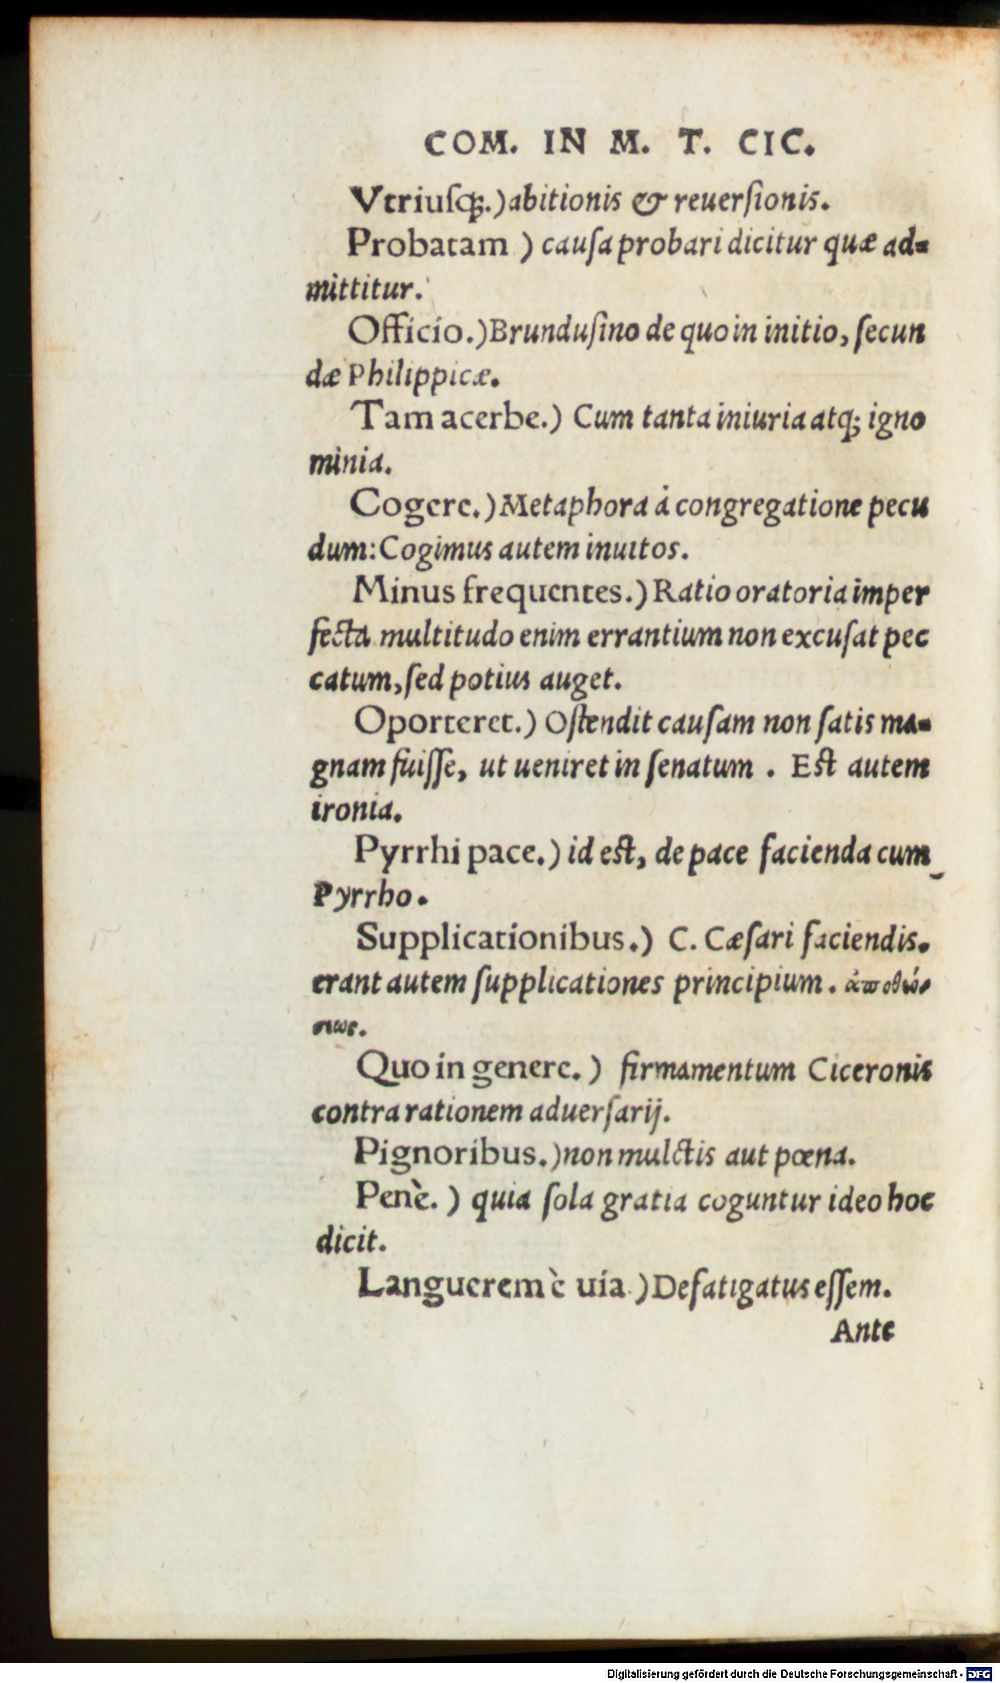 COM. IN M. T. CIC.
Vtriuſq́;.) abitionis & reuerſionis.
Probatam ) cauſa probari dicitur quæ ad=
mittitur.
Officio.) Brunduſino de quo in initio, ſecun
dæ Philippicæ.
Tam acerbe.) Cum tanta iniuria atq; igno
minia.
Cogere.) Metaphora à congregatione pecu
dum: Cogimus autem inuitos.
Minus frequentes.) Ratio oratoria imper
fecta multitudo enim errantium non excuſat pec
catum, ſed potius auget.
Oporteret.) Oſtendit cauſam non ſatis ma=
gnam fuiſſe, ut ueniret in ſenatum . Eſt autem
ironia.
Pyrrhi pace.) id eſt, de pace facienda cum
Pyrrho.
Supplicationibus.) C. Cæſari faciendis.
erant autem ſupplicationes principium.
Quo in genere. ) firmamentum Ciceronis
contra rationem aduerſarij.
Pignoribus.) non mulctis aut pœna.
Penè. ) quia ſola gratia coguntur ideo hoc
dicit.
Languerem è uia ) Defatigatus eſſem.
Ante
Digitalisierung gefördert durch die Deutsche Forschungsgemeinschaft - DFG